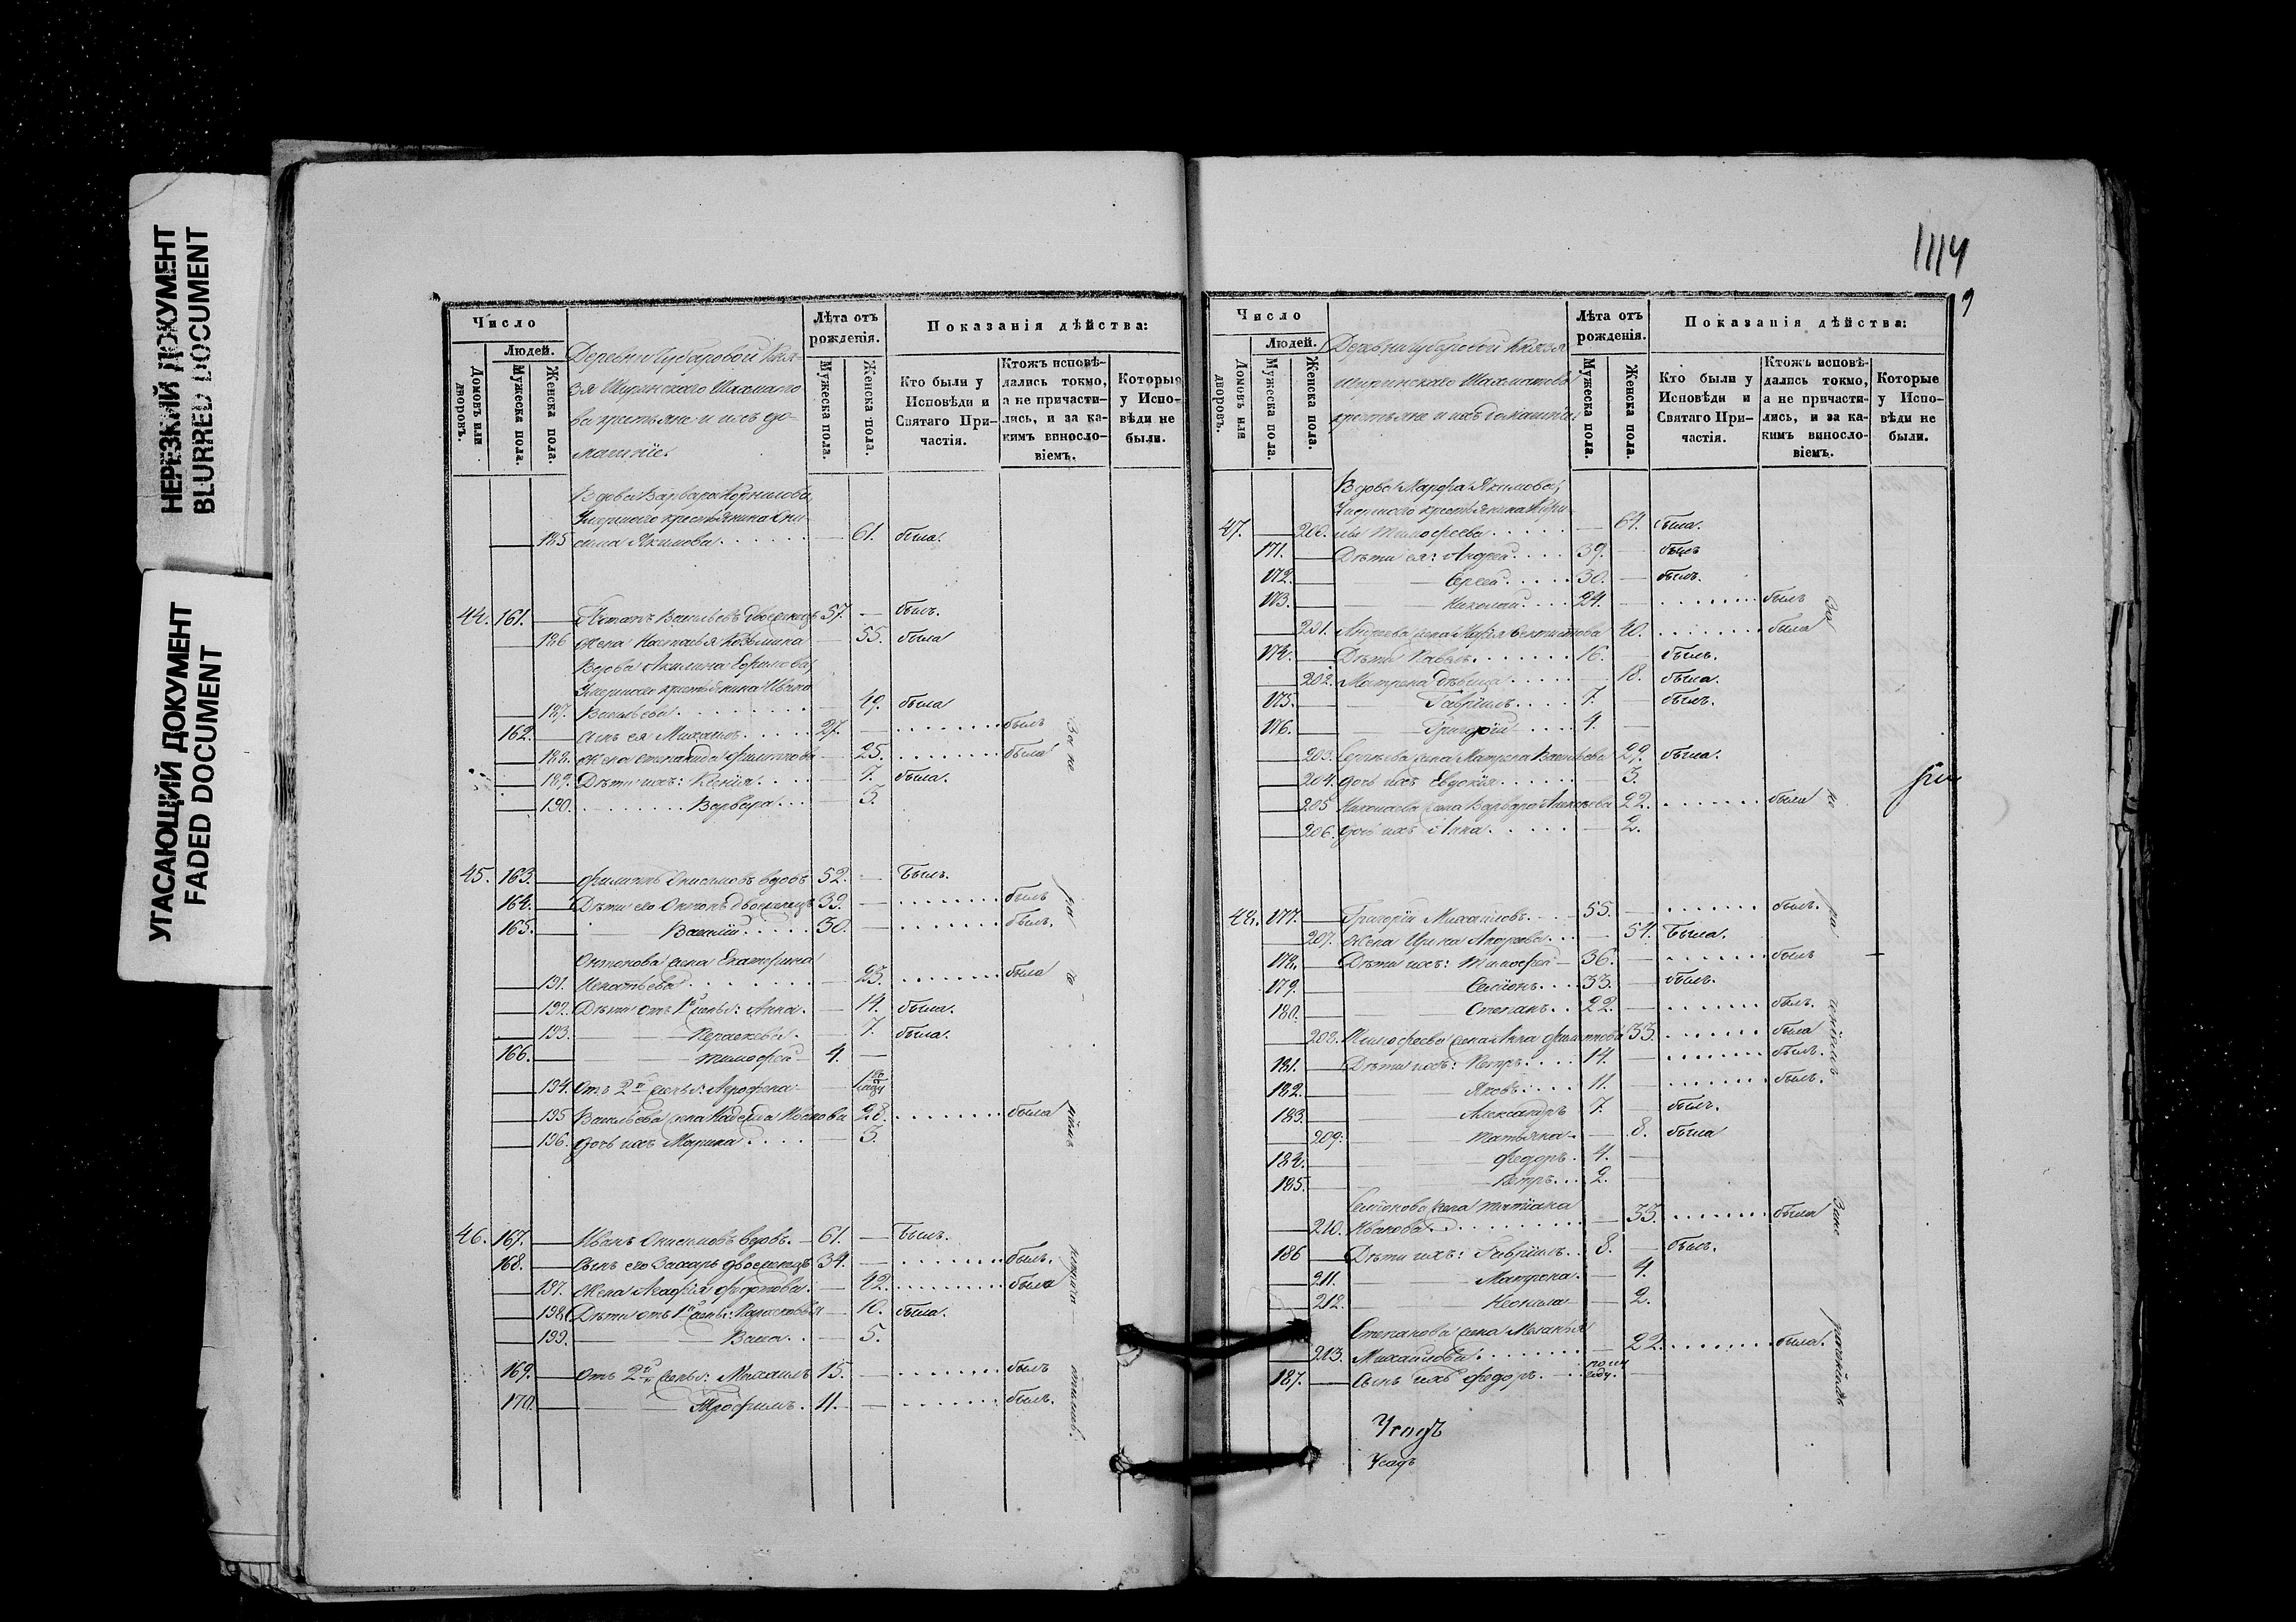 НЕРЕЗКИЙ ДОКУМЕНТ
BLURRED DOCUMENT
УГАСАЮЩИЙ ДОКУМЕНТ
FADED DOCUMENT
Число
Людей.
Домовъ или дворовъ.
Мужеска пола.
Женска пола.
Деревни Губаровой Кня-
зя Ширинскаго Шахмато
ва крестьяне и ихъ до-
машніе.
Лѣта отъ рожденія.
Мужеска пола.
Женска пола.
Показанія дѣйства:
Кто были у Исповѣди и Святаго При-частія.
Ктожъ исповѣ-дались токмо, а не причасти-лись, и за ка-кимъ винословіемъ.
Которые у Испо-вѣди не были.
Вдова Варвара Корнилова,
Умершаго крестьянина Они-
185 сима Якимова 61. была.
44. 161. Потапъ Васильевъ двоеженецъ 57. былъ.
186 Жена Настасья Козьмина 55. была
Вдова Акилина Ефимова,
Умершаго крестьянина Ивана
187. Васильева 49. была
162. Сынъ ея Михаилъ 27. былъ
188. Жена Степанида Филиппова 25. была
189. Дѣти ихъ: Ксенія 7. была.
190. Варвара 3.
45. 163. Филиппъ Онисимовъ вдовъ 52. Былъ.
164. Дѣти его Антонъ двоеженецъ 33. былъ
165. Василій 30. былъ.
Антонова жена Екатерина
191. Игнатьева 23. была
192. Дѣти отъ 1й жены: Анна. 14. была.
193. Пераскева. 7. была.
166. Тимофей 4.
194. Отъ 2й жены: Агрофена году
195 Васильева жена Надежда 28. была
196. Дочь ихъ Марина 3.
46. 167. Иванъ Онисимовъ вдовъ. 61. Былъ.
168. Сынъ его Захаръ двоеженецъ 34. былъ.
197. Жена Агафія Федотова 42. была
198 Дѣти отъ 1й жены: Парасковья 10. была.
199. Васса 5.
169. Отъ 2й жены: Михаилъ 15. былъ
170. Трофимъ. 11. былъ.
1114
Число
Людей.
Домовъ или дворовъ.
Мужеска пола.
Женска пола.
Деревни Губаровой Князя
Ширинскаго Шахматова
крестьяне и ихъ домашніе.
Лѣта отъ рожденія.
Мужеска пола.
Женска пола.
Показанія дѣйства:
Кто были у Исповѣди и Святаго При-частія.
Ктожъ исповѣ-дались токмо, а не причасти-лись, и за ка-кимъ винословіемъ.
Которые у Испо-вѣди не были.
Вдова Марфа Якимова,
Умершаго крестьянина
47. 200. Тимофеева 64. была.
171. Дѣти ея: Андрей 39. былъ
172. Сергей 30. былъ.
173. Николай 24. былъ
201. Андреева жена 40. была
174. Дѣти Павелъ 16. былъ.
202. Матрена дѣвица 18. была.
175. Гавріилъ 7. былъ.
176. Григорій 4.
203. Сергѣева жена Матрена Васильева 29. была.
204. Дочь ихъ Евдокія 3.
205 Николаева жена Варвара Алексѣева 22. была
206. Дочь ихъ Анна 2.
48. 177. Григорій Михайловъ. 55. былъ.
207. Жена Ирина Андреева 54. Была.
178. Дѣти ихъ: Тимофей 36. былъ
179. Семіонъ 33. былъ.
180. Степанъ 22. былъ.
208. Тимофеева жена Анна Филиппова 33. была
181. Дѣти ихъ: Петръ 14. былъ.
182. Яковъ 11. былъ.
183. Александръ 7. былъ.
209. Татьяна 8. была
184. Федоръ 4.
185. Петръ 2.
Семіонова жена Татіана
210. Иванова 33. была
186 Дѣти ихъ: Гавріилъ 8. былъ.
211. Матрона 4.
212. Неонила 2.
Степанова жена Меланья
213. Михайлова 22. была.
187. Сынъ ихъ Федоръ. полу году.
Усадъ